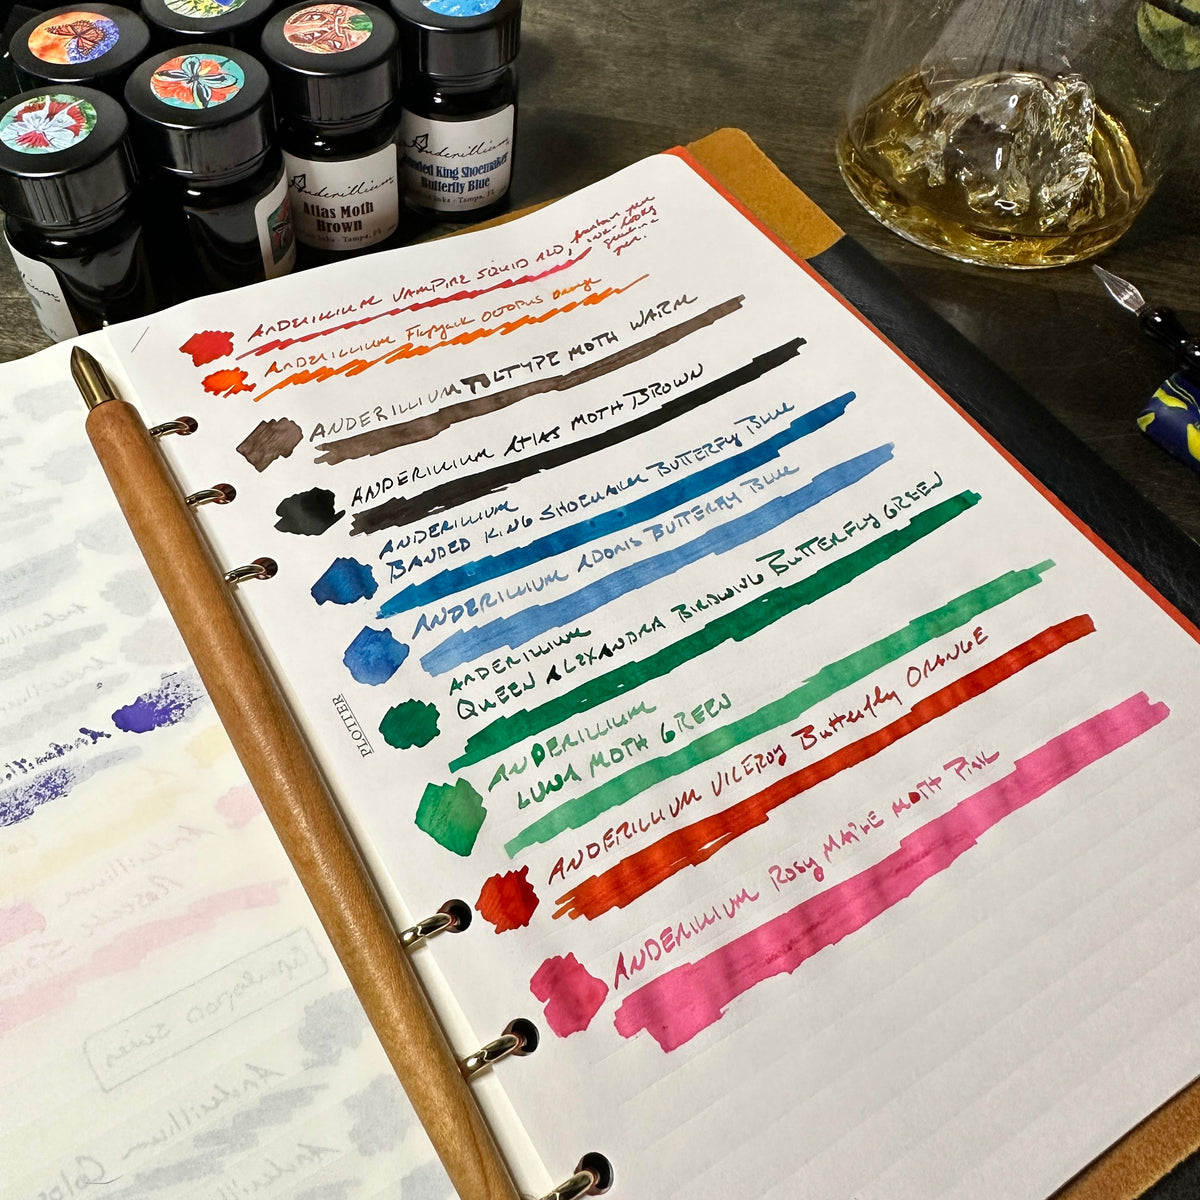 Anderillium
Banded King Shoemaker
Butterfly Blue
Inks - Tampa, FL
Anderillium
Atlas Moth
Brown
Inks - Tampa, FL
ANDERILLIUM VAMPIRE SQUID RED,
ANDERILLIUM Flapjack OCTOPUS Orange
ANDERILLIUM MOTH WARM
ANDERILLIUM ATLAS MOTH BROWN
ANDERILLIUM
BANDED KING SHOEMAKER BUTTERFLY BLUE
ANDERILLIUM ADONIS BUTTERFLY BLUE
ANDERILLIUM
QUEEN ALEXANDRA BIRDWING BUTTERFLY GREEN
ANDERILLIUM
LUNA MOTH GREEN
ANDERILLIUM VICEROY Butterfly ORANGE
ANDERILLIUM Rosy MAPLE MOTH PINK
PLOTTER